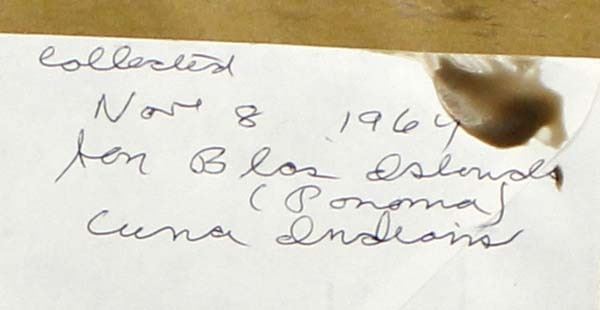 Collected
Nov 8 1964
San Blas Islands
(Panama)
Cuna Indians